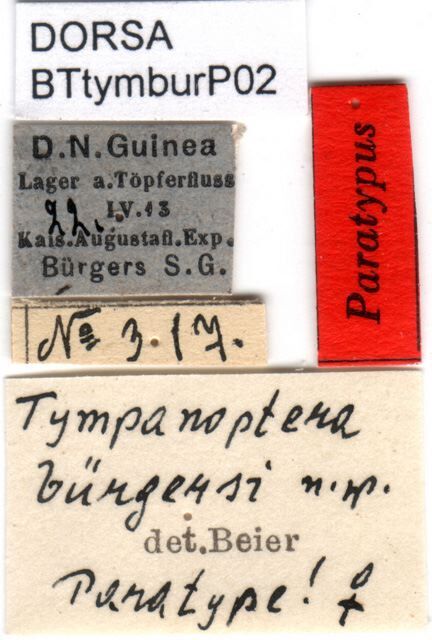 DORSA
BTtymburP02
D.N.Guinea
Lager a.Töpferfluss
22. IV.13
Kais.Augustafl.Exp.
Bürgers S.G.
Paratypus
No 3.17.
Tympanoptera
bürgersi n.sp.
det.Beier
Paratype! ♀